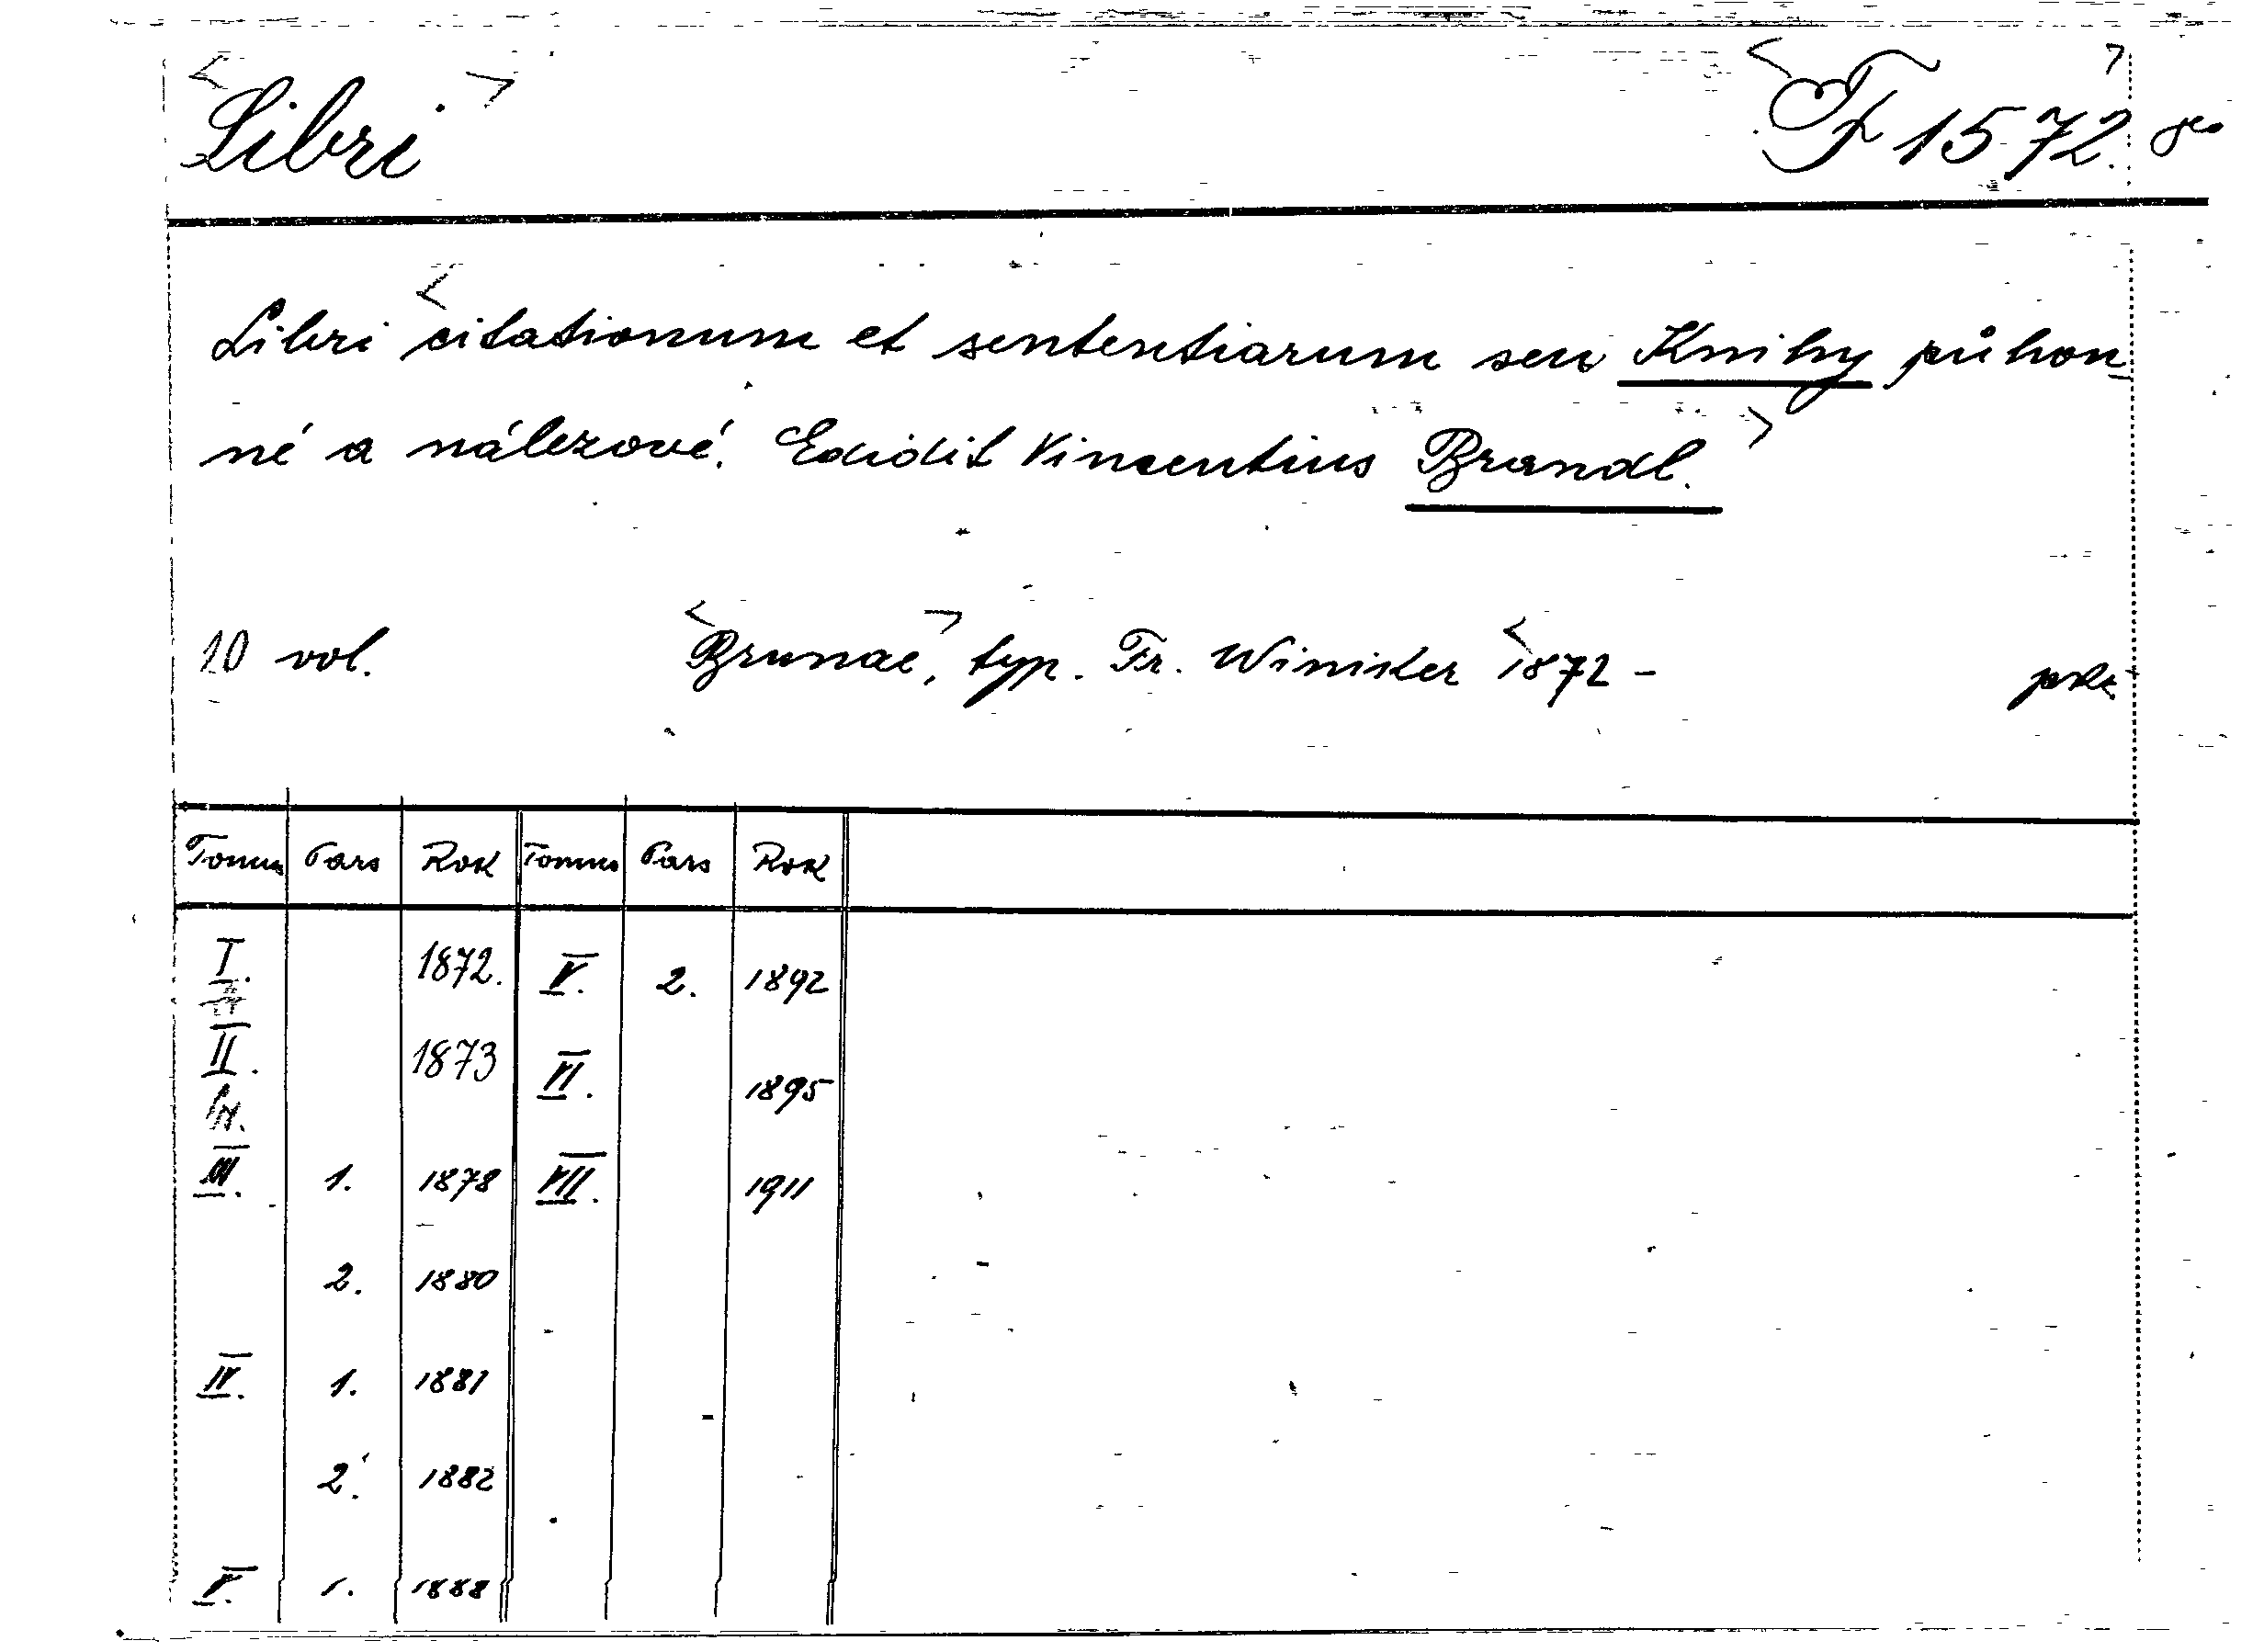 Libri F 1572
Libri citationum et sententiarum seu Knihy půhon-
né a nálezové. Edidit Vincentius Brandl.
10 vol. Brunae, typ. Fr. Winiker 1872 -
Tomus Pars Rok Tomus Pars Rok
I. 1872. V. 2. 1892
II. 1873 VI. 1895
III. 1. 1878 VII. 1911
2. 1880
IV. 1. 1881
2. 1882
V. 1. 1888